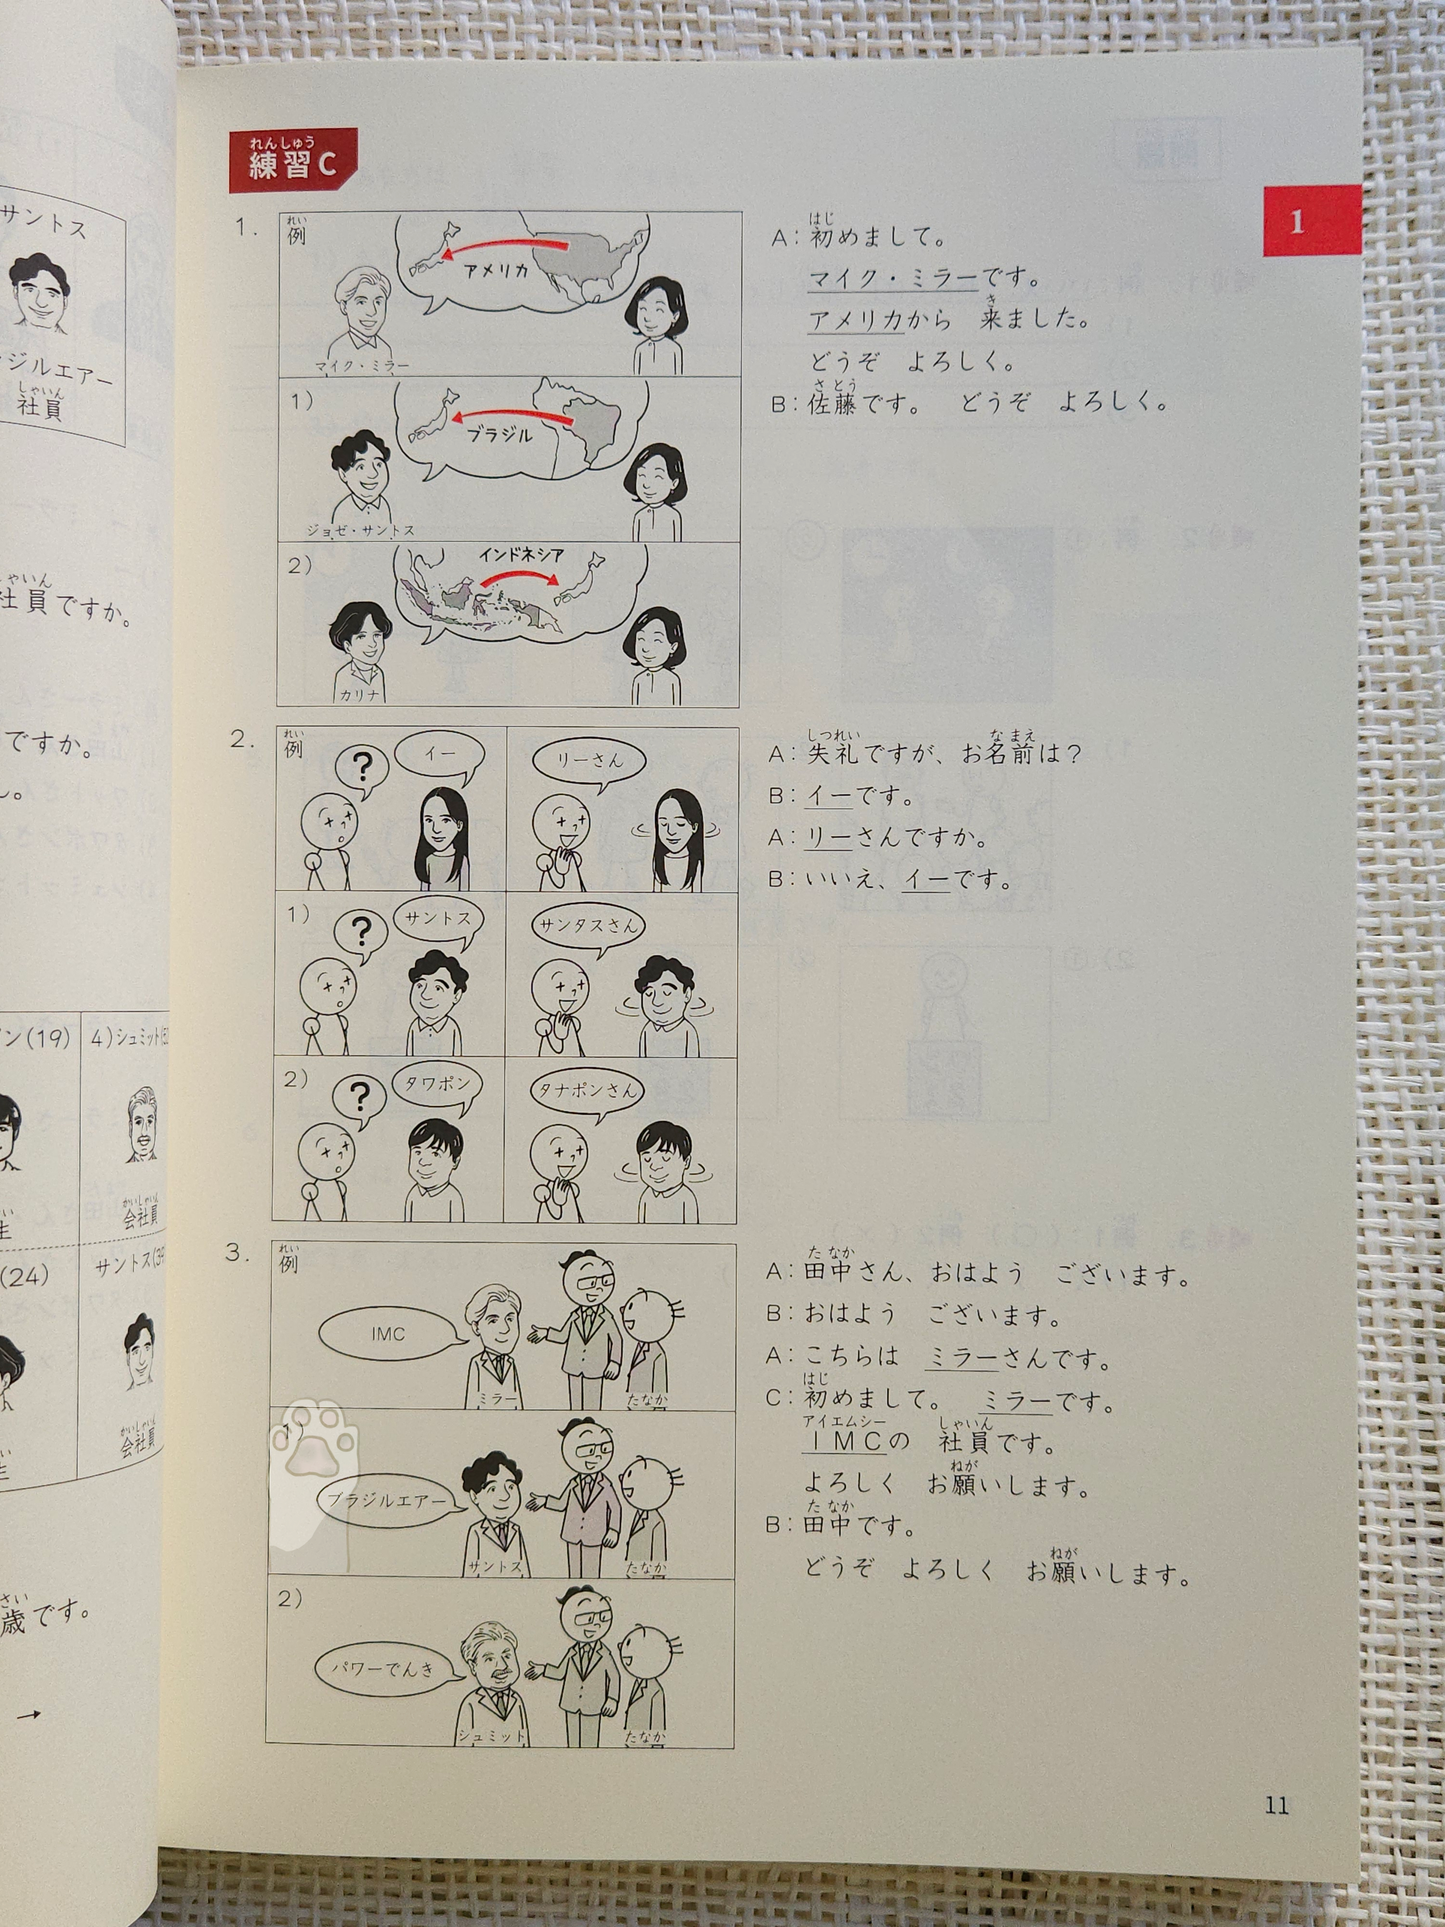 サントス
ジルエアー
しゃいん
社員
ゃいん
社員ですか。
ですか。
ン(19)
4)シュミット(5
かいしゃいん
会社員
生
(24)
サントス(39
かいしゃいん
会社員
生
さい
歳です。
→
れんしゅう
練習C
1
1.
れい
例
アメリカ
マイク・ミラー
1)
ブラジル
ジョゼ・サントス
2)
インドネシア
カリナ
はじ
A：初めまして。
マイク・ミラーです。
き
アメリカから　来ました。
どうぞ　よろしく。
さとう
B：佐藤です。　どうぞ　よろしく。
2.
れい
例
?
イー
リーさん
1)
?
サントス
サンタスさん
2)
?
タワポン
タナポンさん
しつれい　なまえ
A：失礼ですが、お名前は？
B：イーです。
A：リーさんですか。
B：いいえ、イーです。
3.
れい
例
IMC
ミラー
たなか
1)
ブラジルエアー
サントス
たなか
2)
パワーでんき
シュミット
たなか
た なか
A：田中さん、おはよう　ございます。
B：おはよう　ございます。
A：こちらは　ミラーさんです。
はじ
C：初めまして。　ミラーです。
アイエムシー　しゃいん
IMCの　社員です。
ねが
よろしく　お願いします。
た なか
B：田中です。
ねが
どうぞ　よろしく　お願いします。
11